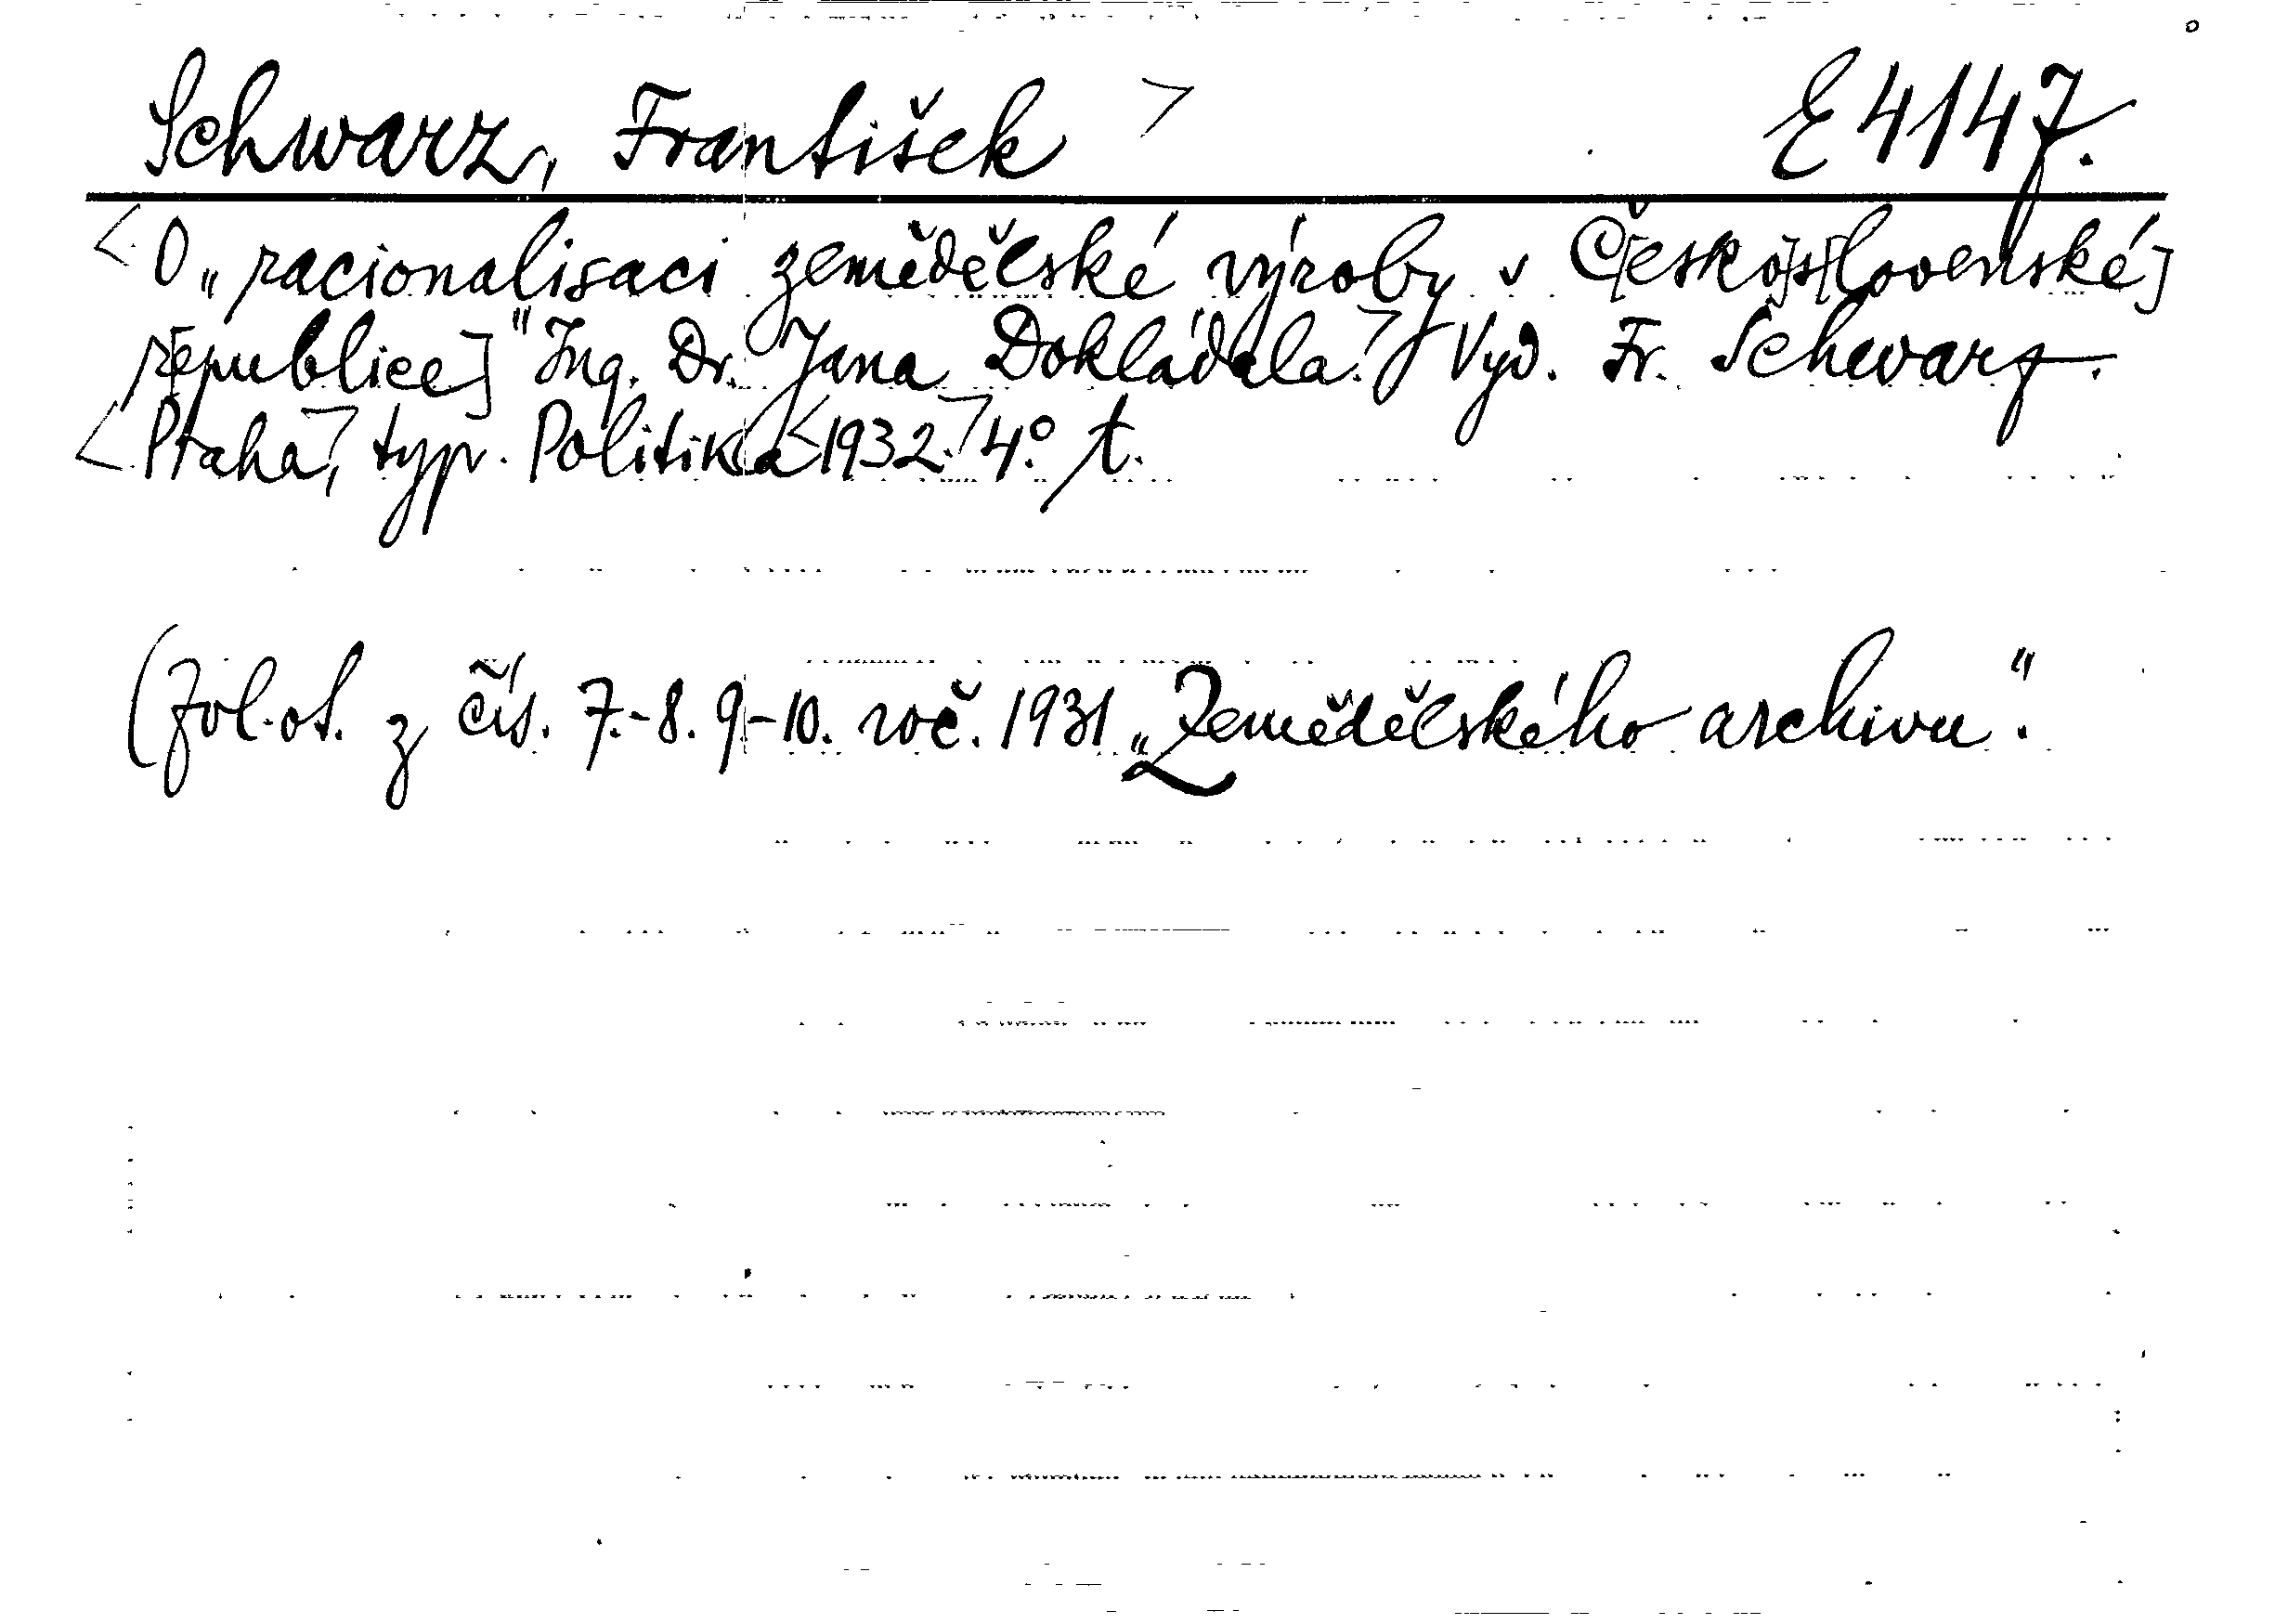 Schwarz, František > E 4147.
< O „racionalisaci zemědělské výroby v Č[esko]s[lovenské]
r[epublice]" Ing. Dr. Jana Dokládala.> Vyd. Fr. Schwarz.
< Praha>, typ. Politika <1932.> 4° t.
(Zvl. ot. z čís. 7.-8. 9-10. roč. 1931 „Zemědělského archivu".